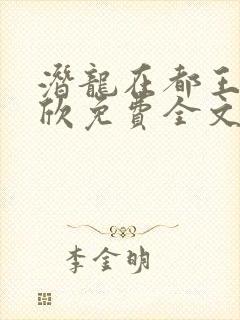 潛龍在都王
欣免費全文
李金明